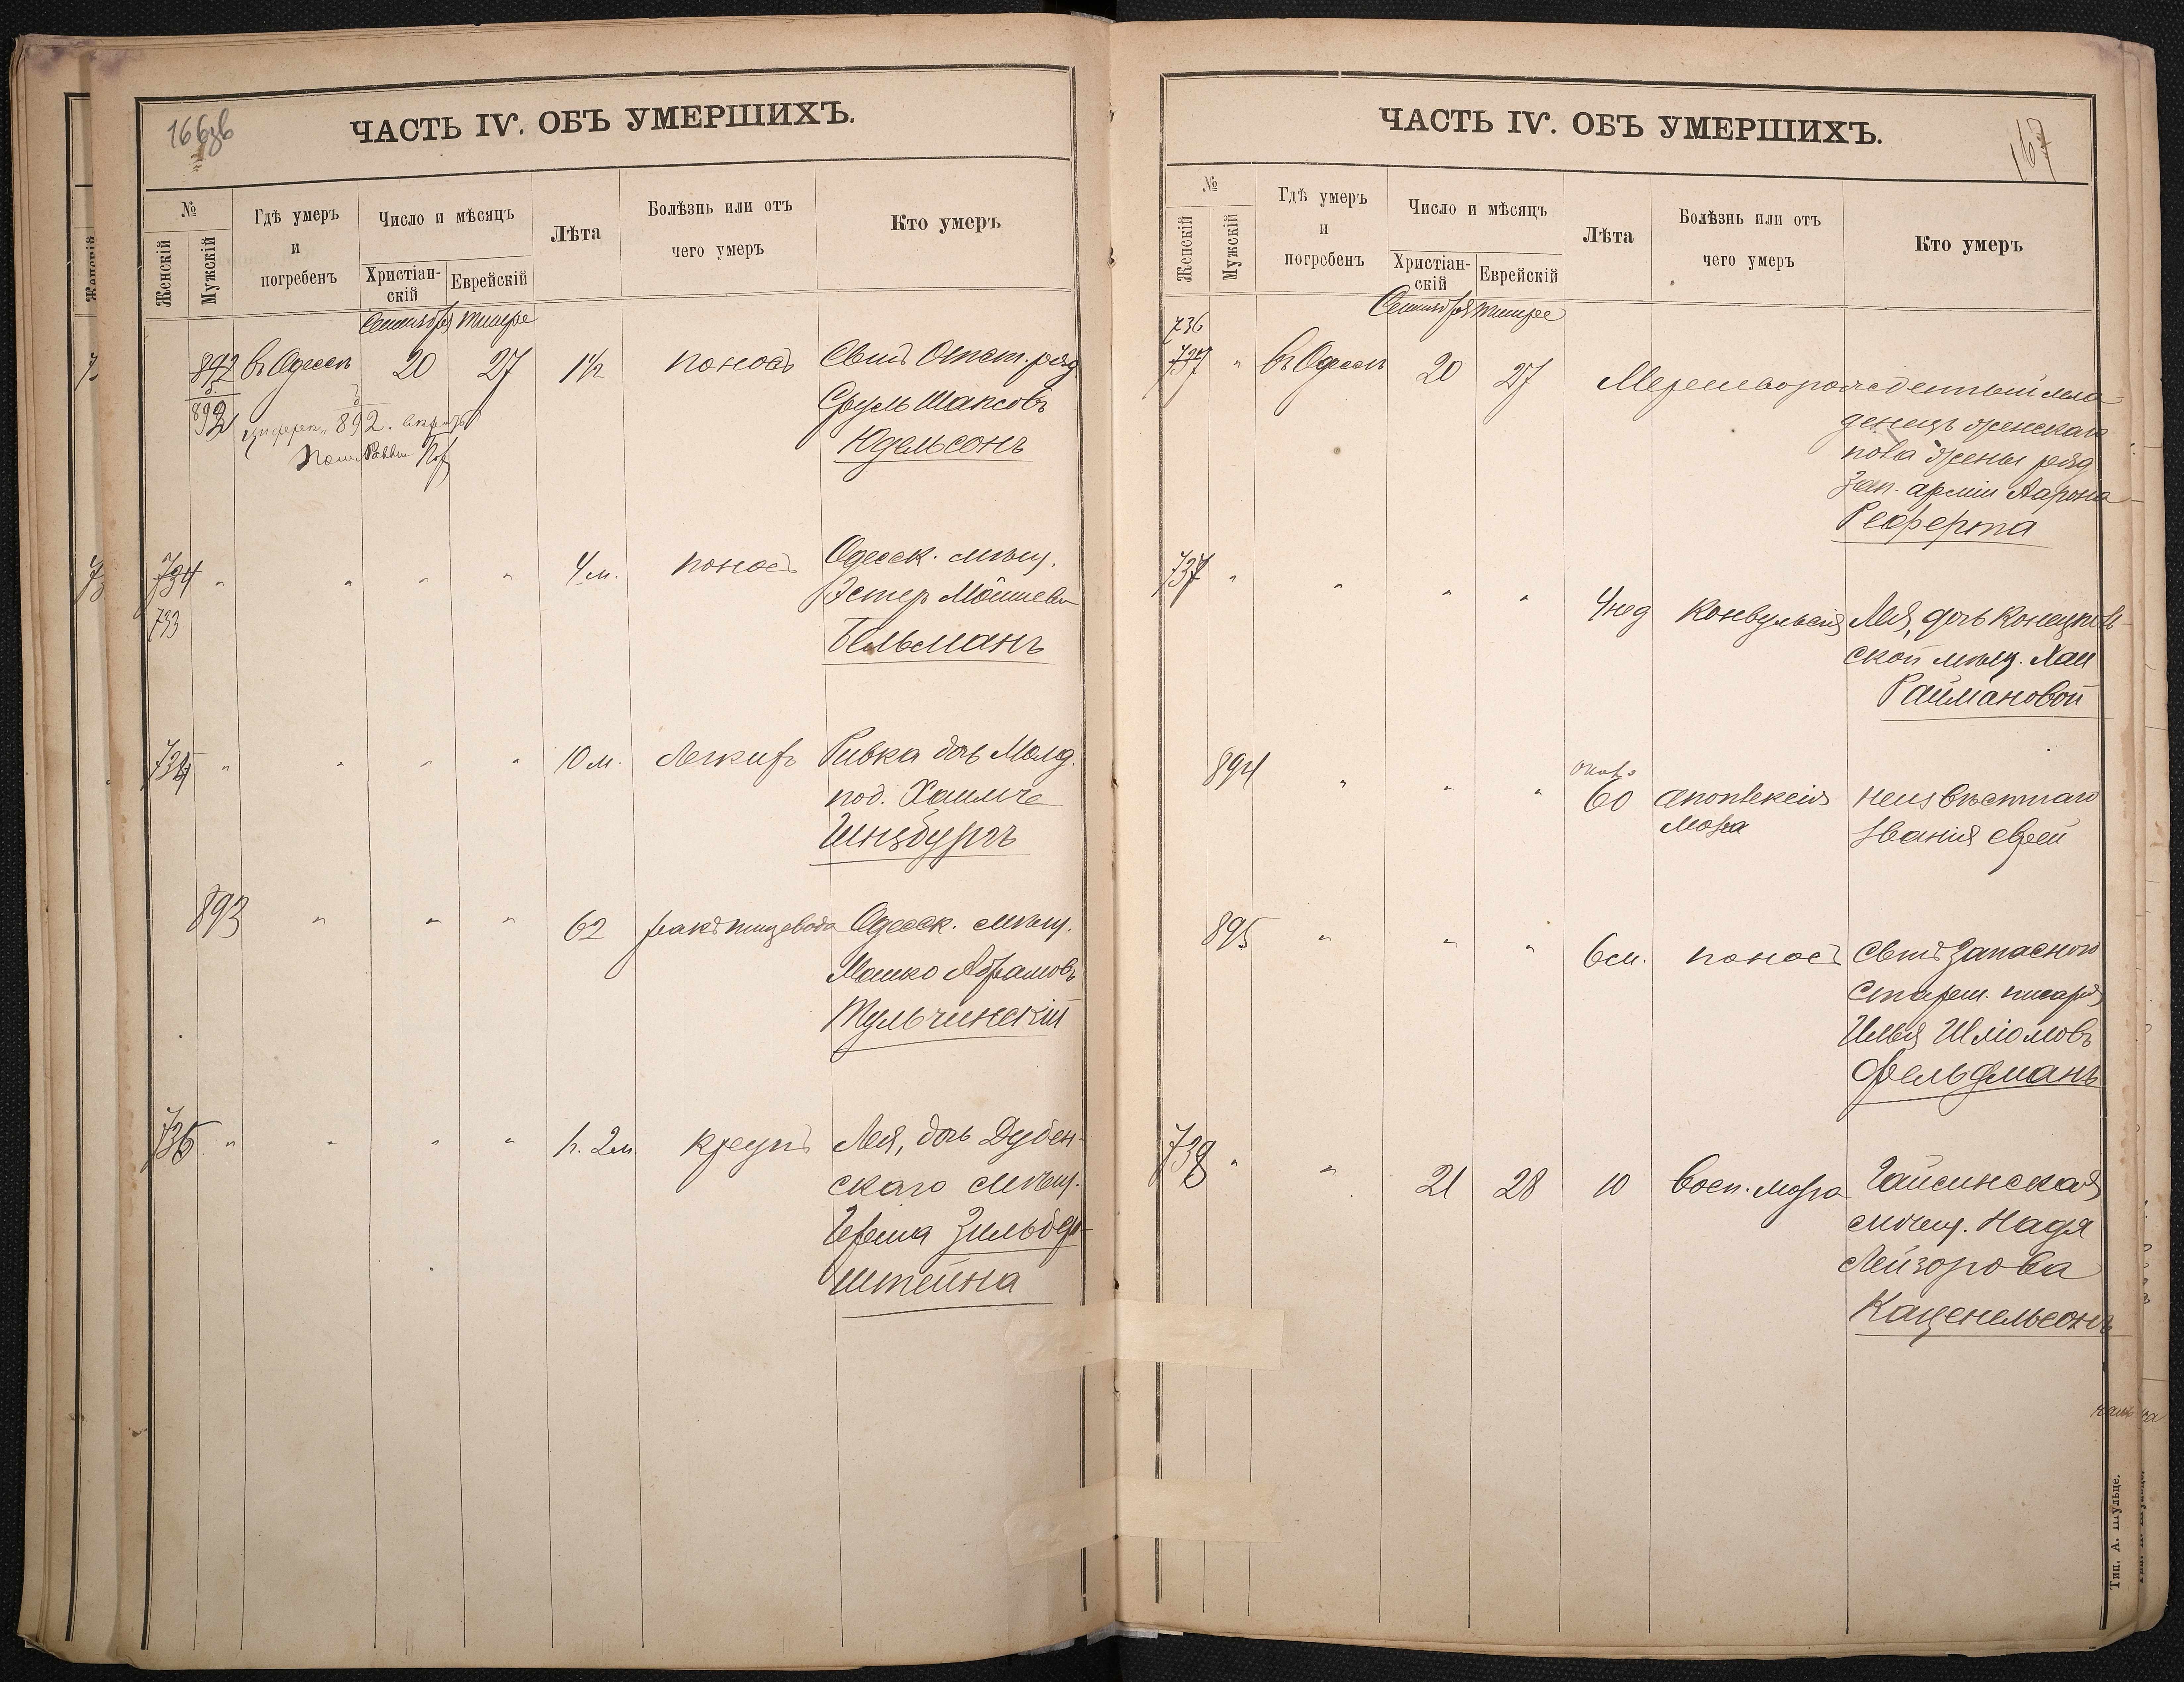 166 зв
ЧАСТЬ IV. ОБЪ УМЕРШИХЪ.
№
Женскій
Мужскій
Гдѣ умеръ
и
погребенъ
Число и мѣсяцъ
Христіан-
скій
Еврейскій
Лѣта
Болѣзнь или отъ
чего умеръ
Кто умеръ
Сентября Тишре
892 въ Одессѣ 20 27 1½ поносъ Сынъ Отст. ряд.
892
Сруль Шапсовъ
892.
Юдельсонъ
734 " " " " 4 м. поносъ Одесск. мѣщ.
733
Эстер Мошкова
Гельманъ
734 " " " " 10 м. Ривка дочь Молд.
под. Хаимъ
Гинзбургъ
893 " " " 62 ракъ пищевода Одесск. мѣщ.
Мошко Абрамовъ
Тульчинскій
735 " " " " 1 г. 2 м. крупъ Лея, дочь Дубен-
скаго мѣщ.
Герша Зильбер-
штейна
167
ЧАСТЬ IV. ОБЪ УМЕРШИХЪ.
№
Женскій
Мужскій
Гдѣ умеръ
и
погребенъ
Число и мѣсяцъ
Христіан-
скій
Еврейскій
Лѣта
Болѣзнь или отъ
чего умеръ
Кто умеръ
Сентября Тишре
736
737 " въ Одессѣ 20 27 Мертворожденный мла-
денецъ женскаго
пола жены ряд.
зап. арміи Аарона
Реферта
737 " " " " 4 нед конвульсія Лея, дочь
ской мѣщ. Хаи
Раймановой
894 " " " около
60 апоплексія неизвѣстнаго
мозга званія еврей
895 " " " 6 м. поносъ Сынъ запасного
старш. писаря
Илья Шліомовъ
Фельдманъ
738 " " 21 28 10 восп. мозга Гайсинская
мѣщ. Надя
Лейзорова
Каценельсонъ
Тип. А. Шульце.